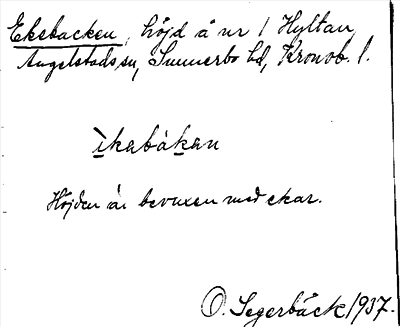 Eksbacken, höjd å nr 1 Hyltan,
Angelstads sn, Sunnerbo hd, Kronob. l.
ìkabákan
Höjden är bevuxen med ekar.
O. Segerbäck 1937.